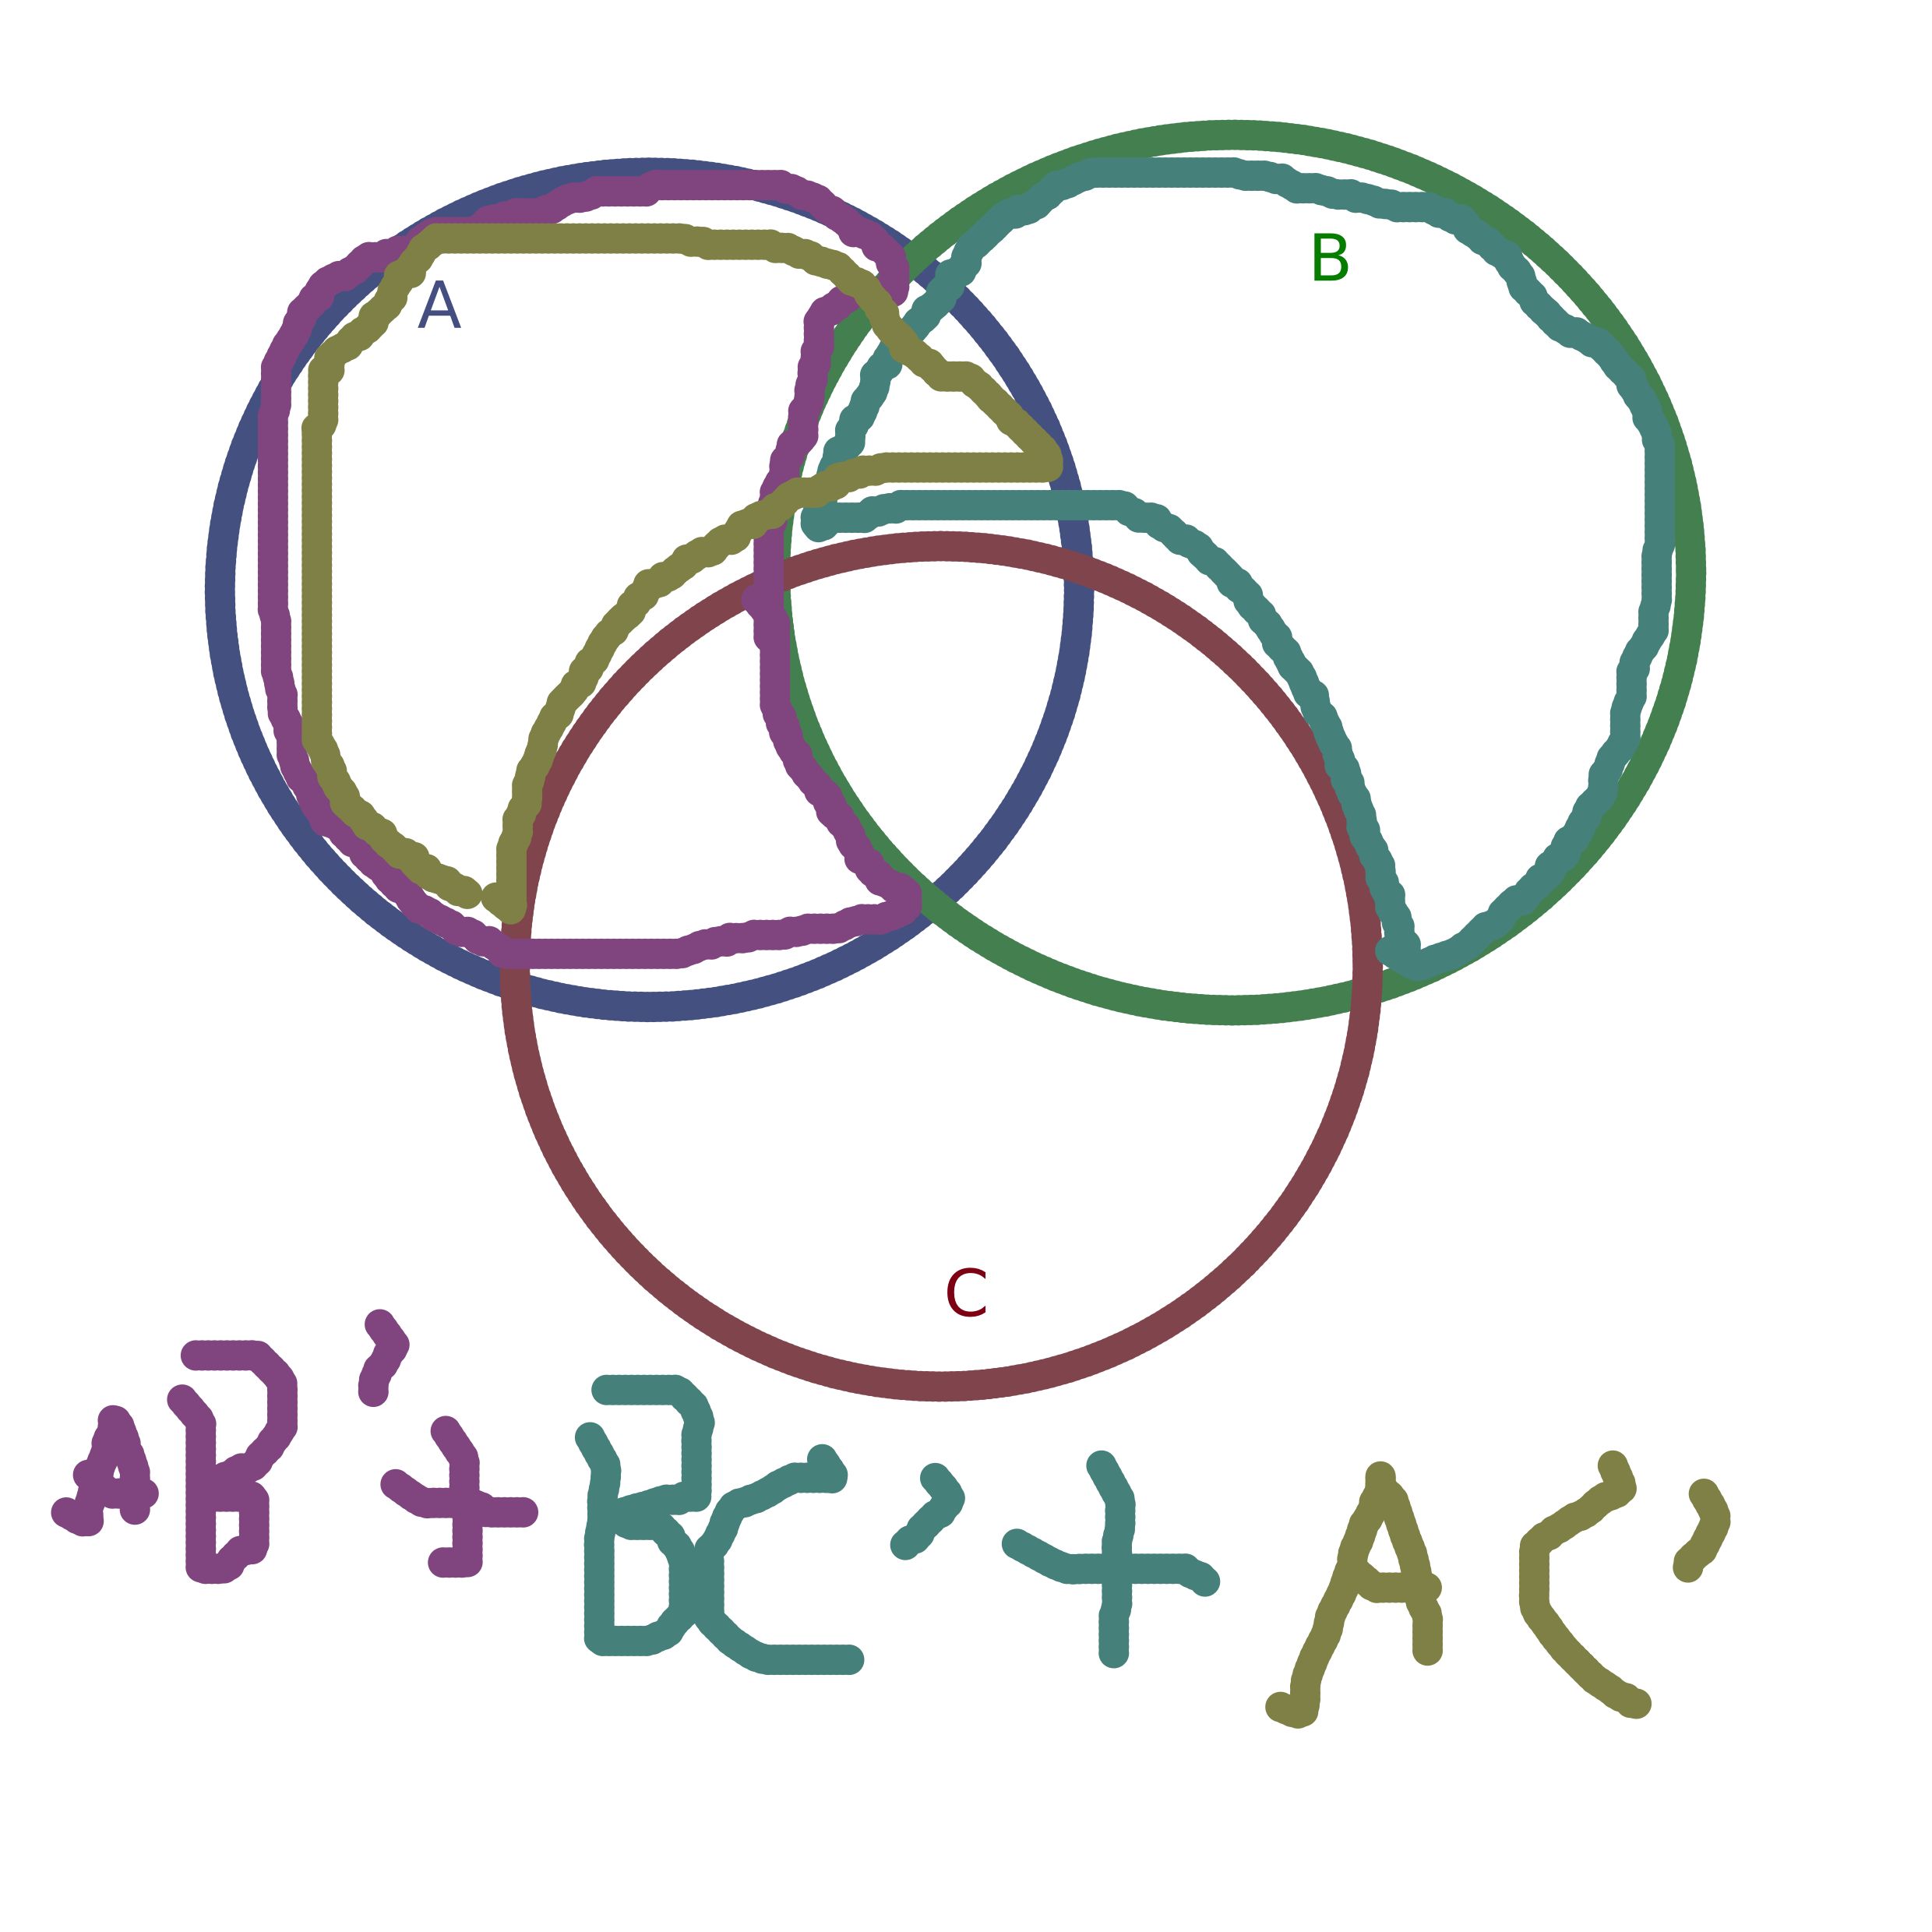 A
B
C
AB'+BC'+AC'